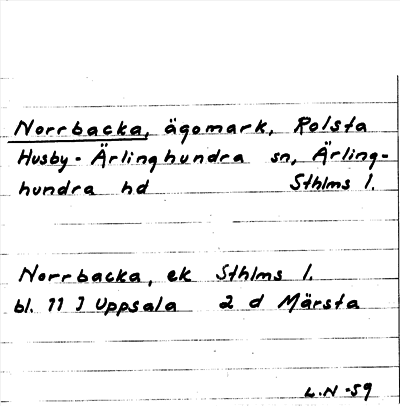 Norrbacka, ägomark, Rolsta
Husby-Ärlinghundra sn, Ärling-
hundra hd Sthlms l.
Norrbacka, ek Sthlms l.
bl. 11 I Uppsala 2 d Märsta
L.N -59